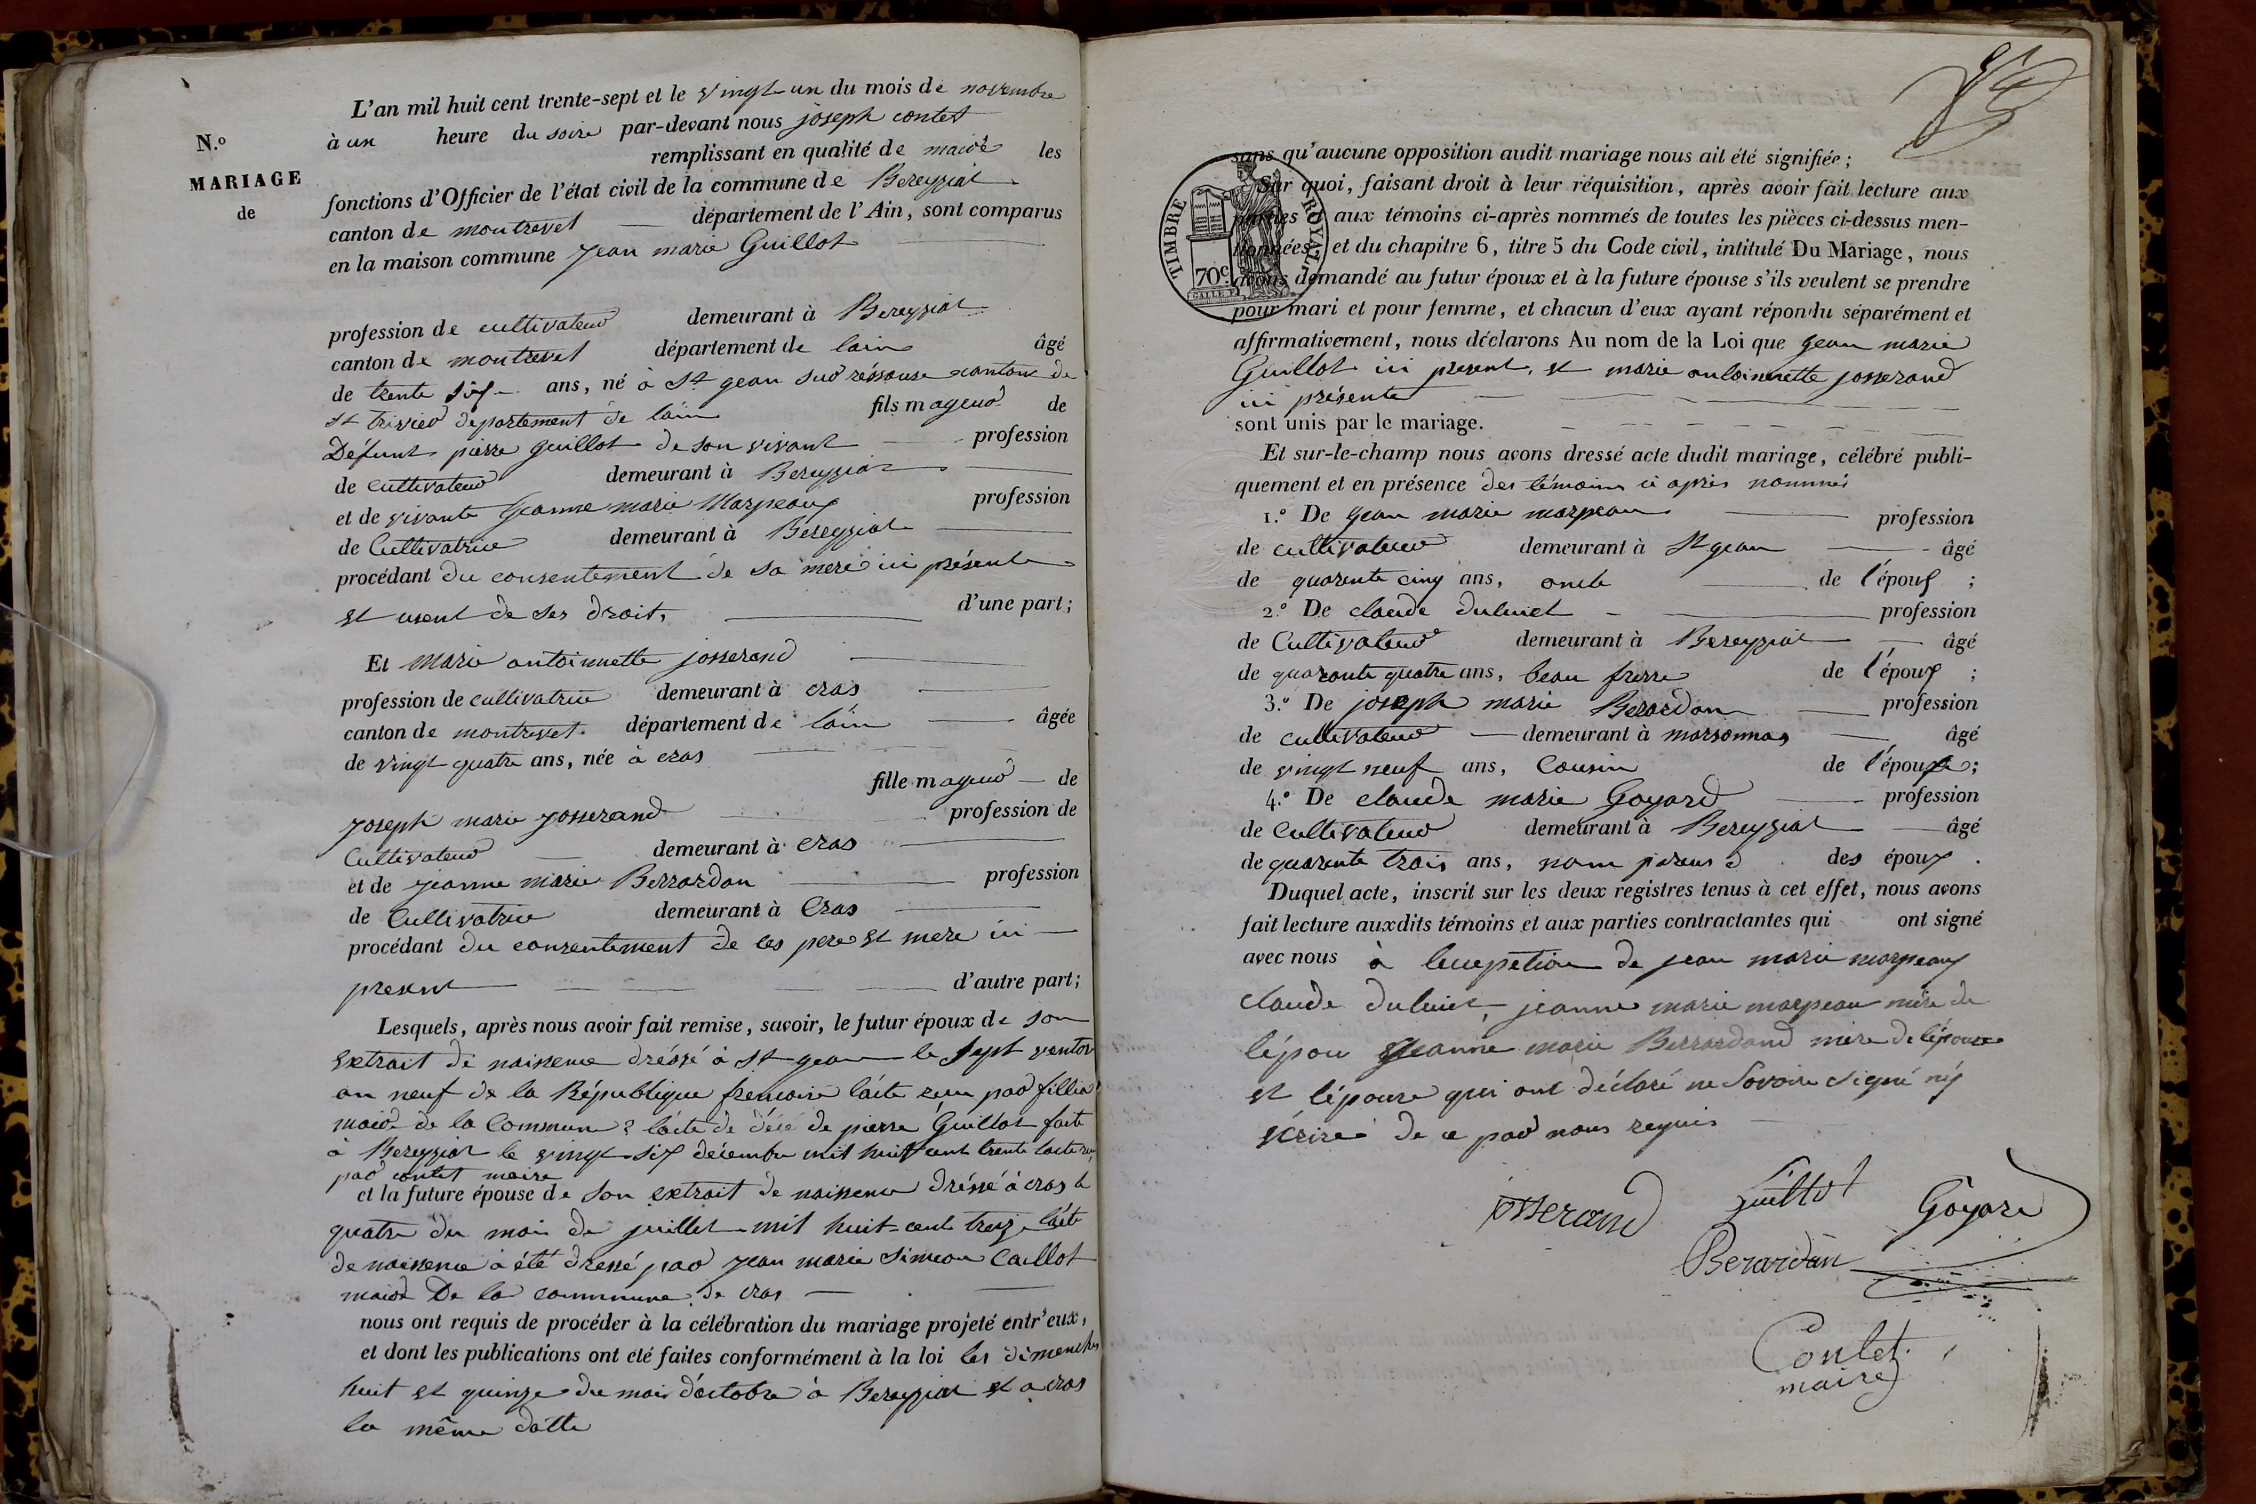 N.º
MARIAGE
de
L'an mil huit cent trente-sept et le vingt un du mois de novembre
à un heure du soire par-devant nous joseph contet
remplissant en qualité de maire les
fonctions d'Officier de l'état civil de la commune de Bereyziat
canton de montrevel département de l'Ain, sont comparus
en la maison commune Jean marie Guillot
profession de cultivateur demeurant à Bereyziat
canton de montrevel département de lain âgé
de trente six ans, né à St jean sur réssouse canton de
st trivier département de lain fils mageur de
Défunt pierre Guillot de son vivant profession
de cultivateur demeurant à Bereyziat
et de vivante Jeanne marie Marpeaux profession
de Cultivatrice demeurant à Bereyziat
procédant du consentement de sa mere ici présente
et usent de ses droit, d'une part;
Et Marie antoinnette josserand
profession de cultivatrice demeurant à cras
canton de montrevel département de lain âgée
de vingt quatre ans, née à cras
fille mageur de
Joseph marie Josserand profession de
Cultivateur demeurant à cras
et de jeanne marie Berrardan profession
de Cultivatrice demeurant à Cras
procédant du consentement de ces pere et mere ici
present d'autre part;
Lesquels, après nous avoir fait remise, savoir, le futur époux de son
extrait de naissence dréssé à St jean le sept ventos
an neuf de la République frencaire lácte reçu par fillia
maire de la Commune & lácte de décé de pierre Guillot faite
à Bereyziat le vingt six décembre mil huit cent trente lacte reçu
par contet maire
et la future épouse de son extrait de naissence dréssé à cras le
quatre du mois de juillet mil huit cent treize lácte
de naissence à été dressé par jean marie Simeon Caillot
maire De la commune de cras
nous ont requis de procéder à la célébration du mariage projeté entr'eux,
et dont les publications ont été faites conformément à la loi les dimenches
huit et quinze du mois d'octobre à Bereyziat et a cras
la même datte
TIMBRE ROYAL
70c.
sans qu'aucune opposition audit mariage nous ait été signifiée;
Sur quoi, faisant droit à leur réquisition, après avoir fait lecture aux
parties et aux témoins ci-après nommés de toutes les pièces ci-dessus men-
tionnées, et du chapitre 6, titre 5 du Code civil, intitulé Du Mariage, nous
avons demandé au futur époux et à la future épouse s'ils veulent se prendre
pour mari et pour femme, et chacun d'eux ayant répondu séparément et
affirmativement, nous déclarons Au nom de la Loi que jean marie
Guillot ici present, et marie antoinnette josserand
ici présente
sont unis par le mariage.
Et sur-le-champ nous avons dressé acte dudit mariage, célébré publi-
quement et en présence des témoins ci après nommés
1.º De jean marie marpeau profession
de cultivateur demeurant à St jean âgé
de quarente cinq ans, oncle de l'époux ;
2.º De claude duluiet profession
de Cultivateur demeurant à Bereyziat âgé
de quarante quatre ans, beau frerre de l'époux ;
3.º De joseph marie Berardan profession
de cultivateur demeurant à marsonnas âgé
de vingt neuf ans, Cousin de l'épouse;
4.º De claude marie Goyard profession
de Cultivateur demeurant à Bereyziat âgé
de quarente trois ans, nom parens des époux .
Duquel acte, inscrit sur les deux registres tenus à cet effet, nous avons
fait lecture auxdits témoins et aux parties contractantes qui ont signé
avec nous à lecepetion de jean marie marpeaux
claude duluiet, jeanne marie marpeau mère de
lépou Jeanne marie Berrardand mere de lépouse
et lépouse qui ont déclaré ne Savoire signé nÿ
écrire de ce par nous requis
josserand Guillot Goyard
Berardan
Contet
maire